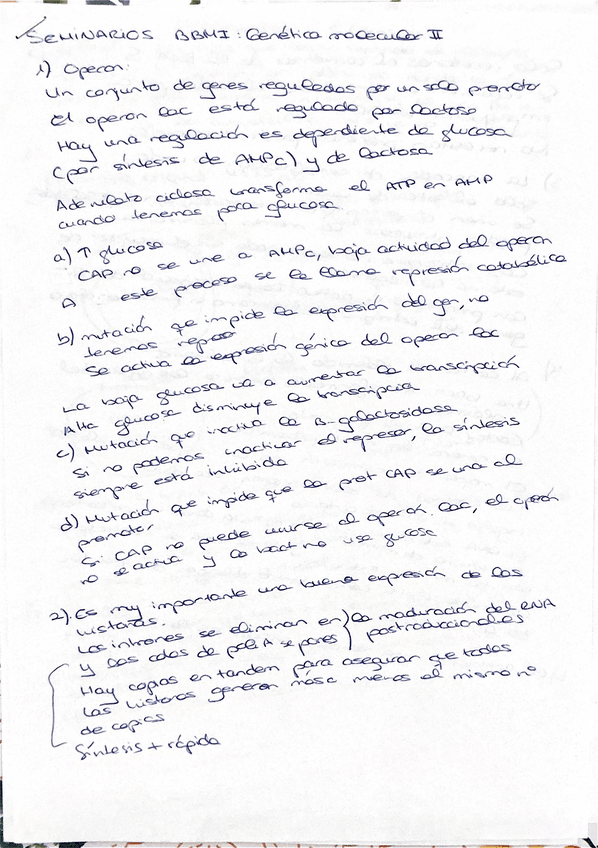 SEMINARIOS BBMI: Genética molecular II
1) Operon:
Un conjunto de genes regulados por un solo promotor
El operon lac está regulado por lactosa
Hay una regulación es dependiente de glucosa
(por síntesis de AMPc) y de lactosa
Adenilato ciclasa transforma el ATP en AMP
cuando tenemos poca glucosa
a) ↑ glucosa
CAP no se une a AMPc, baja actividad del operon
A este proceso se le llama represión catabólica
b) mutación que impide la expresión del gen, no
tenemos represo
Se activa la expresión génica del operon lac
La baja glucosa va a aumentar la transcripción
Alta glucosa disminuye la transcripcia
c) Mutación que inactiva la B-galactosidasa
Si no podemos inactivar el represor, la síntesis
siempre está inhibida
d) Mutación que impide que la prot CAP se una al
promotor
Si CAP no puede unirse al operon lac, el operón
no se activa y la bact no use glucosa
2). Es muy importante una buena expresión de las
histonas.
Los intrones se eliminan en) la maduración del RNA
y las colas de poli A se pones) postraduccionales
Hay copias en tandem para asegurar que todas
las histonas generan más o menos el mismo nº
de copias
Síntesis + rápida